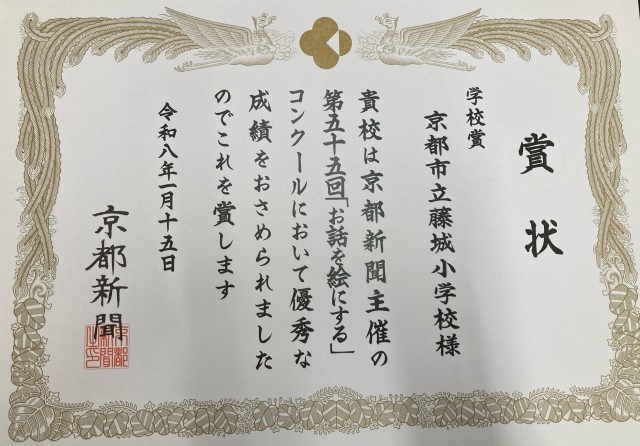 賞状
学校賞
京都市立藤城小学校様
貴校は京都新聞主催の
第五十五回「お話を絵にする」
コンクールにおいて優秀な
成績をおさめられました
のでこれを賞します
令和八年一月十五日
京都新聞